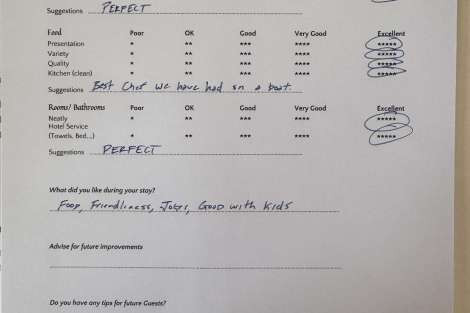 Suggestions PERFECT
Food Poor OK Good Very Good Excellent
Presentation * ** *** **** *****
Variety * ** *** **** *****
Quality * ** *** **** *****
Kitchen (clean) * ** *** **** *****
Suggestions Best Chef we have had on a boat.
Rooms/ Bathrooms Poor OK Good Very Good Excellent
Neatly * ** *** **** *****
Hotel Service
(Towels, Bed...) * ** *** **** *****
Suggestions PERFECT
What did you like during your stay?
Food, Friendliness, Jokes, Good with Kids
Advise for future improvements
Do you have any tips for future Guests?